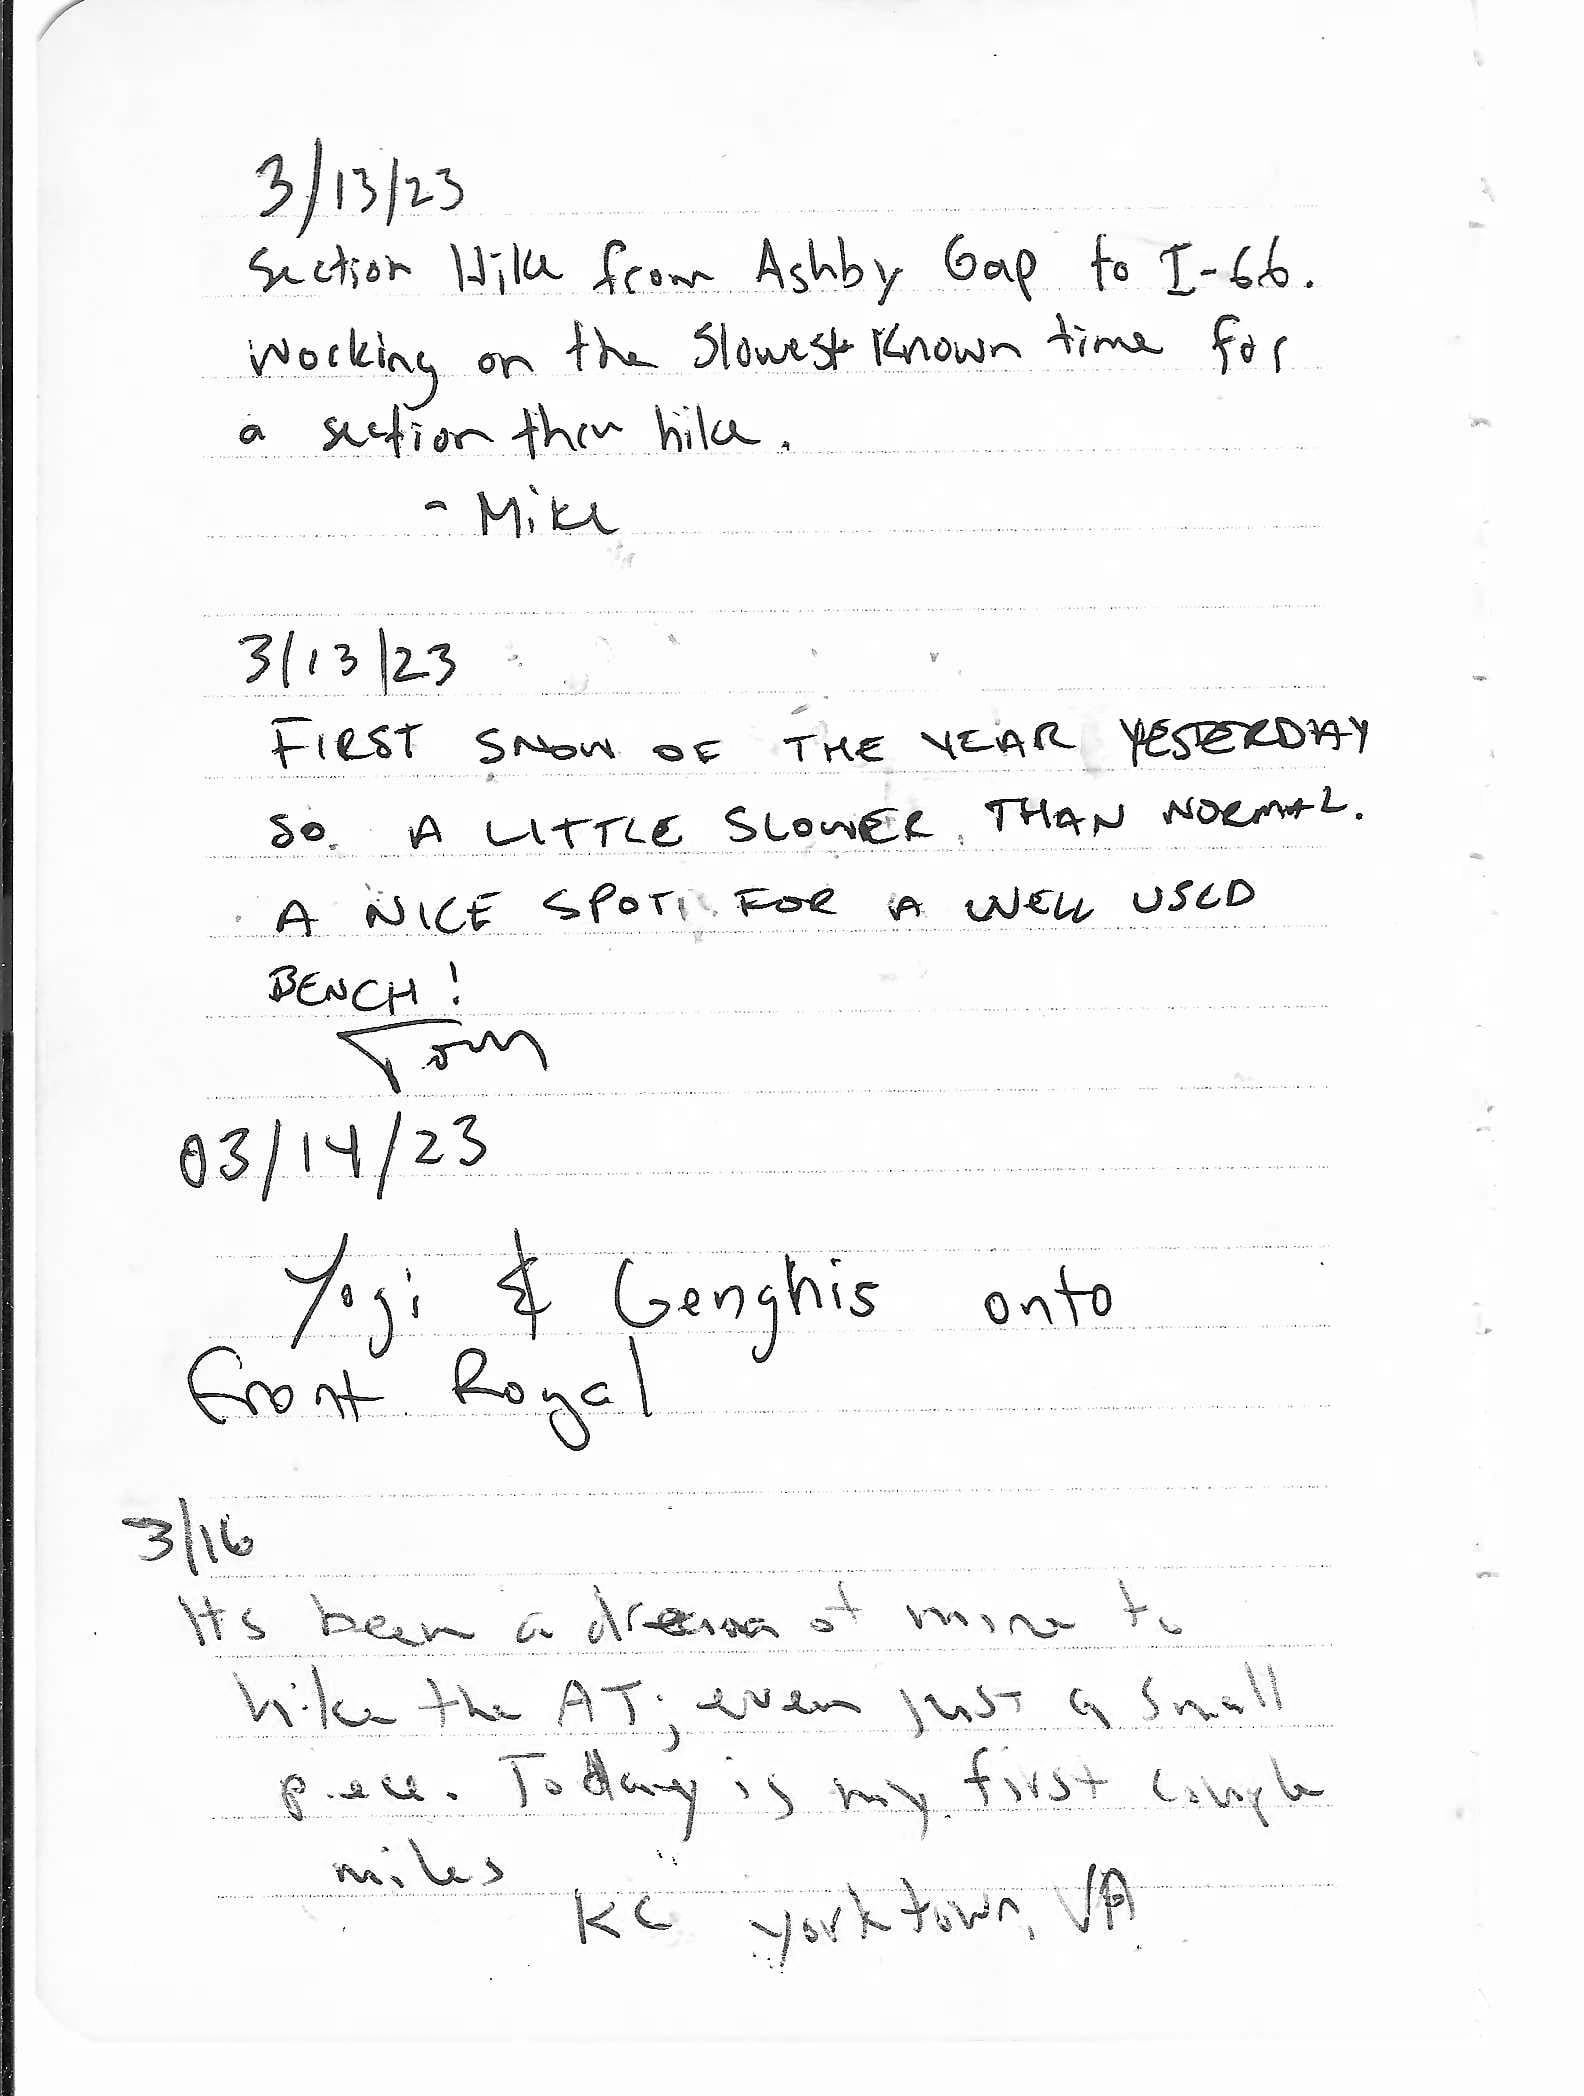 3/13/23
Section Hike from Ashby Gap to I-66.
Working on the Slowest Known time for
a section thru hike.
- Mike
3/13/23
FIRST SNOW OF THE YEAR YESTERDAY
SO. A LITTLE SLOWER THAN NORMAL.
A NICE SPOT FOR A WELL USED
BENCH!
Tom
03/14/23
Yogi & Genghis onto
Front Royal
3/16
Its been a dream of mine to
hike the AT; even just a small
piece. Today is my first couple
miles
KC Yorktown, VA